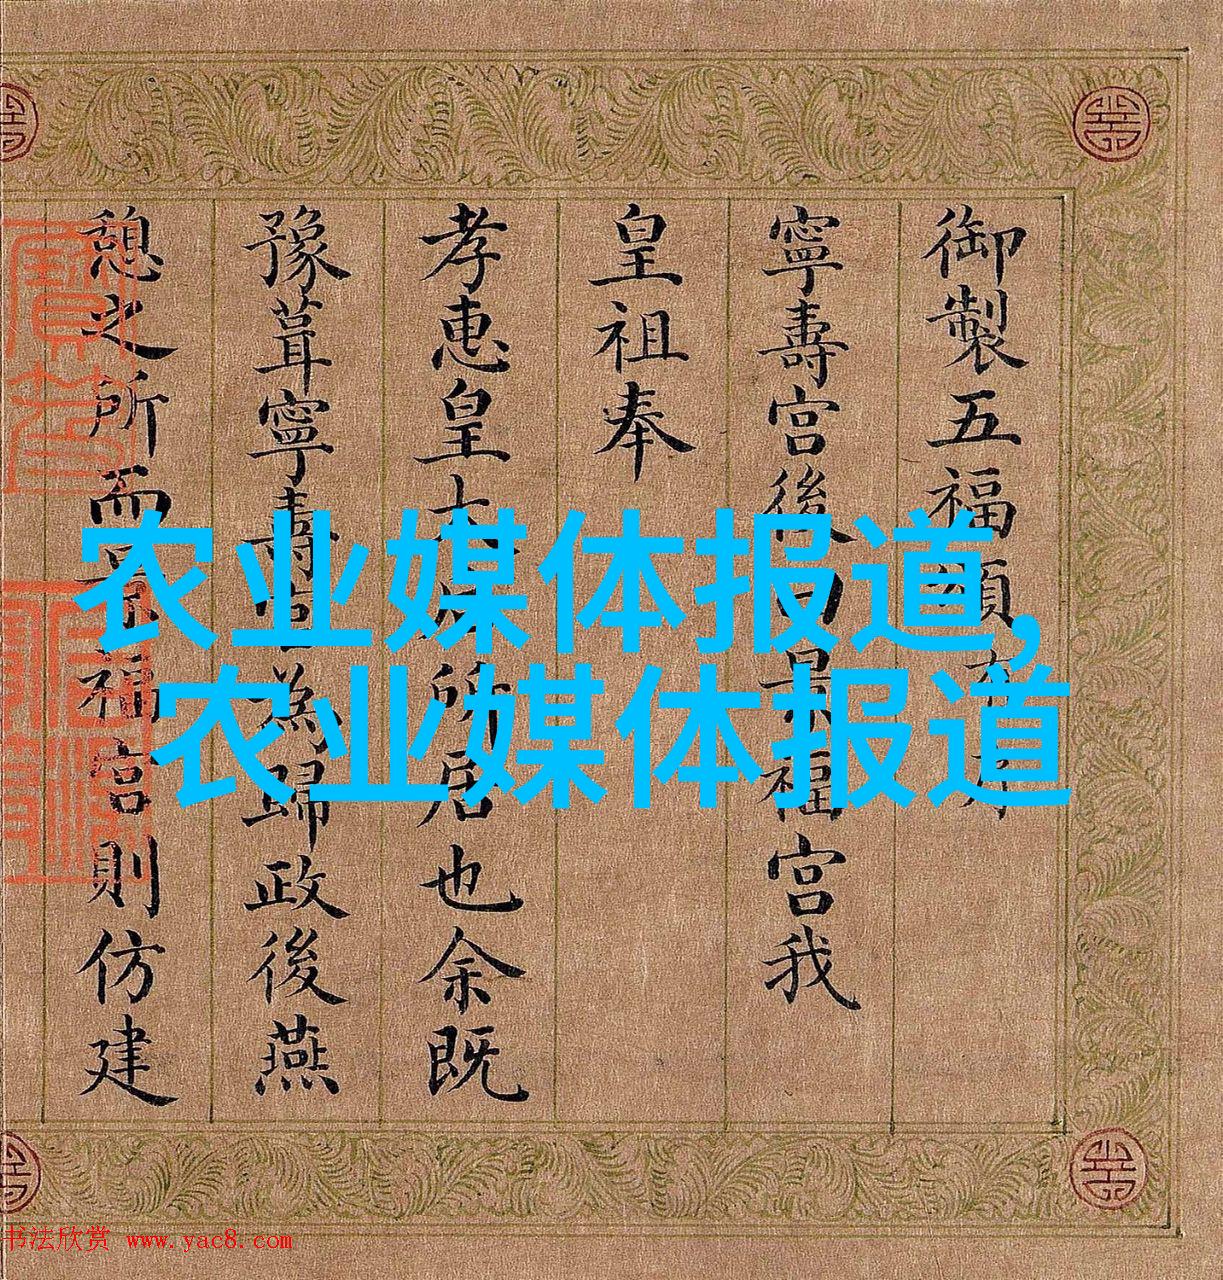 御製五福頌有序
寧壽宮後曰景福宮我
皇祖奉
孝惠皇太后所居也余既
豫葺寧壽宮為歸政後燕
憩之所而景福宮則仿建
农业媒体报道,
农业媒体报道
书法欣赏 www.yac8.com